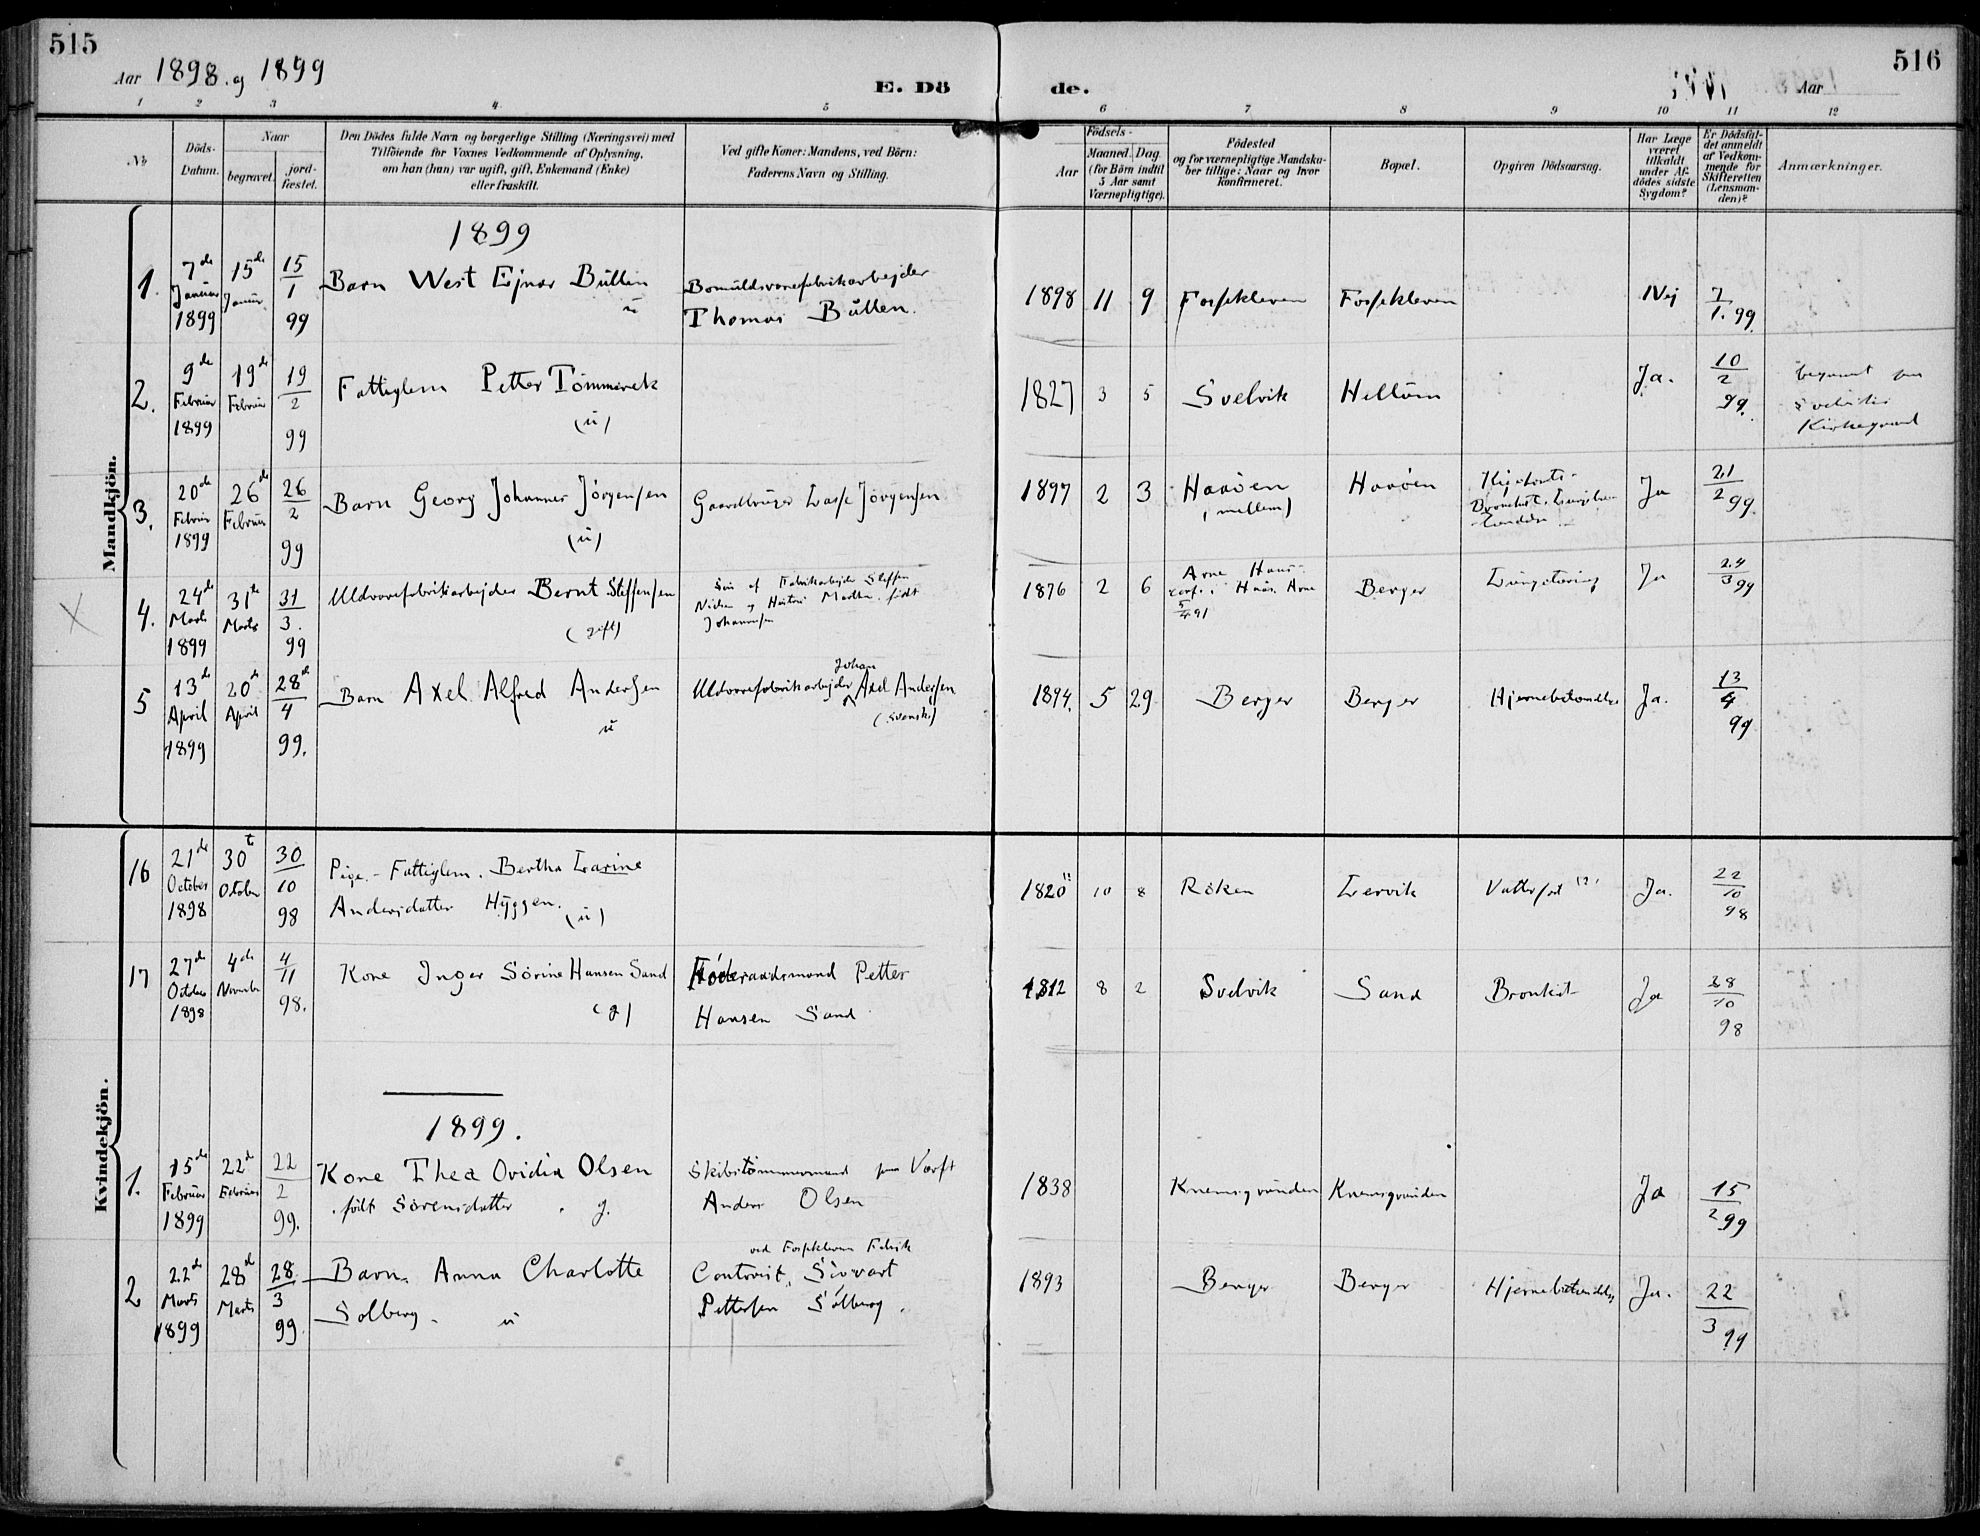 515
516
Aar 1898 og 1899
E. Döde.
Aar
1 2 3 4 5 6 7 8 9 10 11 12
No
Döds-Datum.
Naar
begravet.
jordfæstet.
Den Dödes fulde Navn og borgerlige Stilling (Næringsvei) med
Tilföiende for Voxnes Vedkommende af Oplysning,
om han (hun) var ugift, gift, Enkemand (Enke)
eller fraskilt.
Ved gifte Koner: Mandens, ved Börn:
Faderens Navn og Stilling.
Födsels-
Aar
Maaned. Dag
(for Börn indtil
5 Aar samt
Værnepligtige).
Födested
og for værnepligtige Mandska-
ber tillige: Naar og hvor
konfirmeret.
Bopæl.
Opgiven Dödsaarsag.
Har Læge
været
tilkaldt
under Af-
dödes sidste
Sygdom?
Er Dödsfal-
det anmeldt
af Vedkom-
mende for
Skifteretten
(Lensman-
den)?
Anmærkninger.
Mandkjön.
1899
1. 7de Januar 1899 15de Januar 15/1 99 Barn West Ejnar Bütten u Bomuldsvarefabrikarbejder Thomas Bütten. 1898 11 9 Fossekleven Fossekleven Nej 7/1. 99
2. 9de Februar 1899 19de Februar 19/2 99 Fattiglem Petter Tömmeraek (u) 1827 3 5 Svelvik Hellum Ja. 10/2 99. begravet paa Svelviks Kirkegaard
3. 20de Februar 1899 26de Februar 26/2 99 Barn Georg Johannes Jörgensen (u) Gaardbruger Lasse Jörgensen 1897 2 3 Haaöen (mellem) Haaöen Ja 21/2 99
X 4. 24de Marts 1899 31te Marts 31/3. 99 Uldvarefabrikarbejder Bernt Steffensen (gift) Sön af Fabrikarbejder Steffen Nielsen og Hustru født Johannesen 1876 2 6 Berger Lungetæring Ja 24/3 99
5 13de April 1899 20de April 28de/4 99. Barn Axel Alfred Andersen u Uldvarefabrikarbejder Johan Axel Andersen (svensk) 1894. 5 29 Berger Berger Hjernebetændelse Ja. 13/4 99
Kvindekjön.
16 21de October 1898 30te October 30/10 98 Pige - Fattiglem. Bertha Larine Andersdatter Hyggen. (u) 1820 10 8 Röken Lervik Vattersot (?) Ja. 22/10 98
17 27de October 1898 4de November 4/11 98. Kone Inger Sörine Hansen Sand (g) Föderaadsmand Petter Hansen Sand 1812 8 2 Svelvik Sand Bronkit Ja 28/10 98
1899.
1. 15de Februar 1899 22de Februar 22/2 99. Kone Thea Ovidia Olsen födt Sörensdatter. g. Skibstömmermand paa Værft Anders Olsen 1838 Knemsgrunden Knemsgrunden Ja 15/2 99
2 22de Marts 1899 28de Marts 28/3 99 Barn Anna Charlotte Solberg. u ved Fossekleven Fabrik Contorist, Sivvart Pettersen Solberg. 1893 Berger Berger Hjernebetændelse Ja. 22/3 99